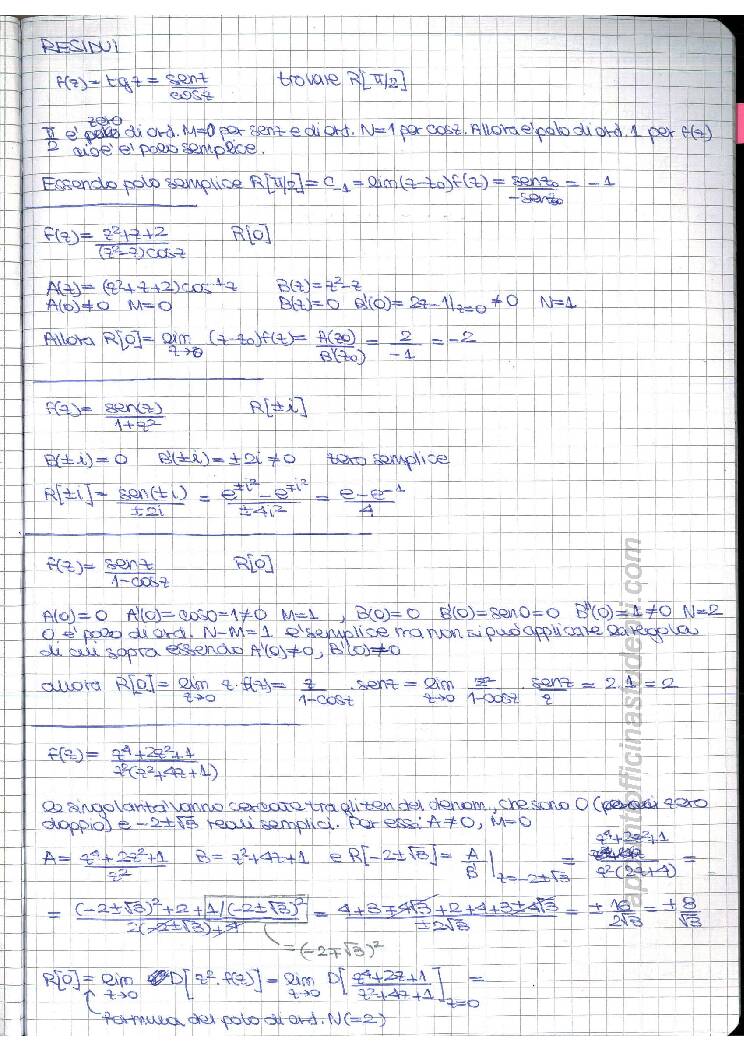 RESIDUI
f(z) = tgz = senz/cosz trovare R[π/2]
zero
π/2 è di ord. M=0 per senz e di ord. N=1 per cosz. Allora è polo di ord. 1 per f(z)
cioè è polo semplice.
Essendo polo semplice R[π/2] = C₋₁ = lim(z-z₀)f(z) = senz₀/-senz₀ = -1
f(z) = z²+z+2/(z²-z)cosz R[0]
A(z) = (z²+z+2)cos⁻¹z B(z) = z²-z
A(0)≠0 M=0 B(z)=0 B'(0) = 2z-1|z=0 ≠0 N=1
Allora R[0] = lim z→0 (z-z₀)f(z) = A(z₀)/B'(z₀) = 2/-1 = -2
f(z) = sen(z)/1+z² R[±i]
B(±i)=0 B'(±i)=±2i≠0 zero semplice
R[±i] = sen(±i)/±2i = e^±i² - e^∓i²/±4i² = e-e⁻¹/4
f(z) = senz/1-cosz R[0]
A(0)=0 A'(0)=cos0=1≠0 M=1 , B(0)=0 B'(0)=sen0=0 B''(0)=1≠0 N=2
0 è polo di ord. N-M=1 è semplice ma non si può applicare la regola
di cui sopra essendo A'(0)≠0, B'(0)≠0
allora R[0] = lim z→0 z·f(z) = z/1-cosz · senz = lim z→0 z²/1-cosz · senz/z = 2·1 = 2
f(z) = z⁴+2z²+1/z²(z²+4z+1)
Le singolarità vanno cercate tra gli zeri del denom., che sono 0 (zero
doppio) e -2±√3 reali semplici. Per essi A≠0, M=0
A = z⁴+2z²+1/z² B = z²+4z+1 e R[-2±√3] = A/B'|z=-2±√3 = z⁴+2z²+1/z²(2z+4) =
= (-2±√3)²+2+1/(-2±√3)²/2(-2±√3)+4 = 4+3∓4√3+2+4+3±4√3/±2√3 = ±16/2√3 = ±8/√3
=(-2∓√3)²
R[0] = lim z→0 D[z²·f(z)] = lim z→0 D[z⁴+2z+1/z²+4z+1]z=0 =
formula del polo di ord. N(=2)
appuntofficinastudenti.com